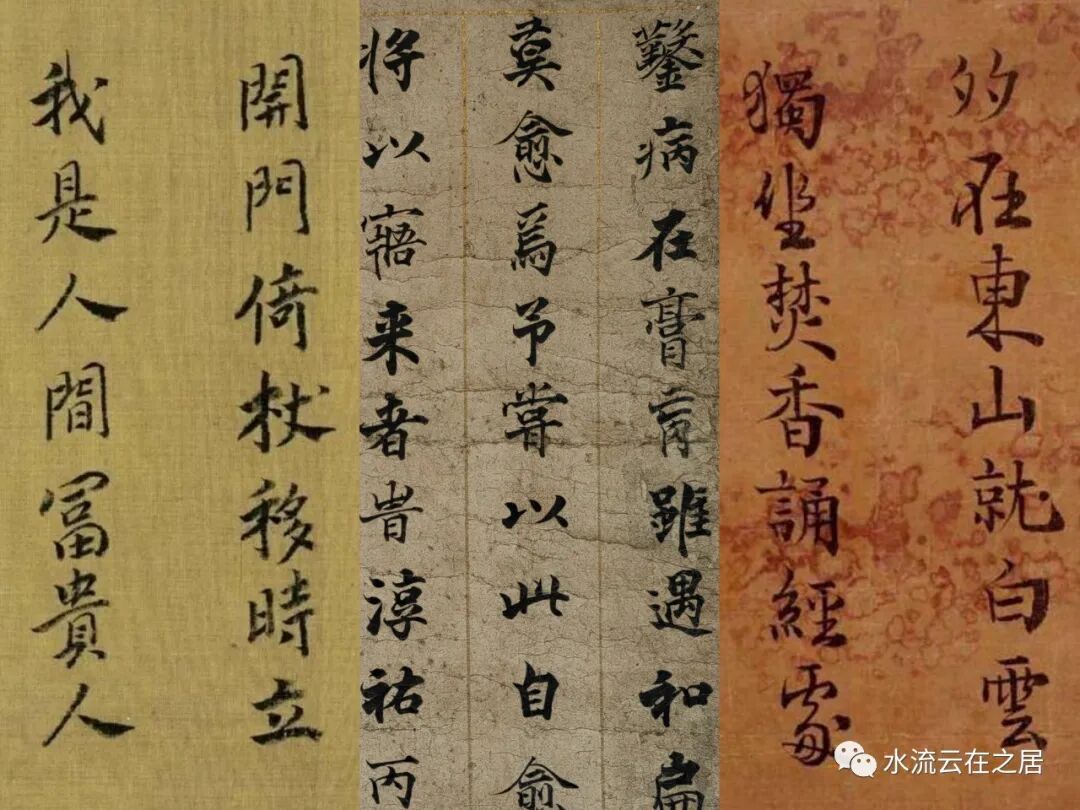 多在東山就白雲
獨坐焚香誦經處
鑿病在膏肓雖遇和扁
莫愈焉予嘗以此自愈
將以寤来者旹淳祐丙
開門倚杖移時立
我是人間冨貴人
水流云在之居